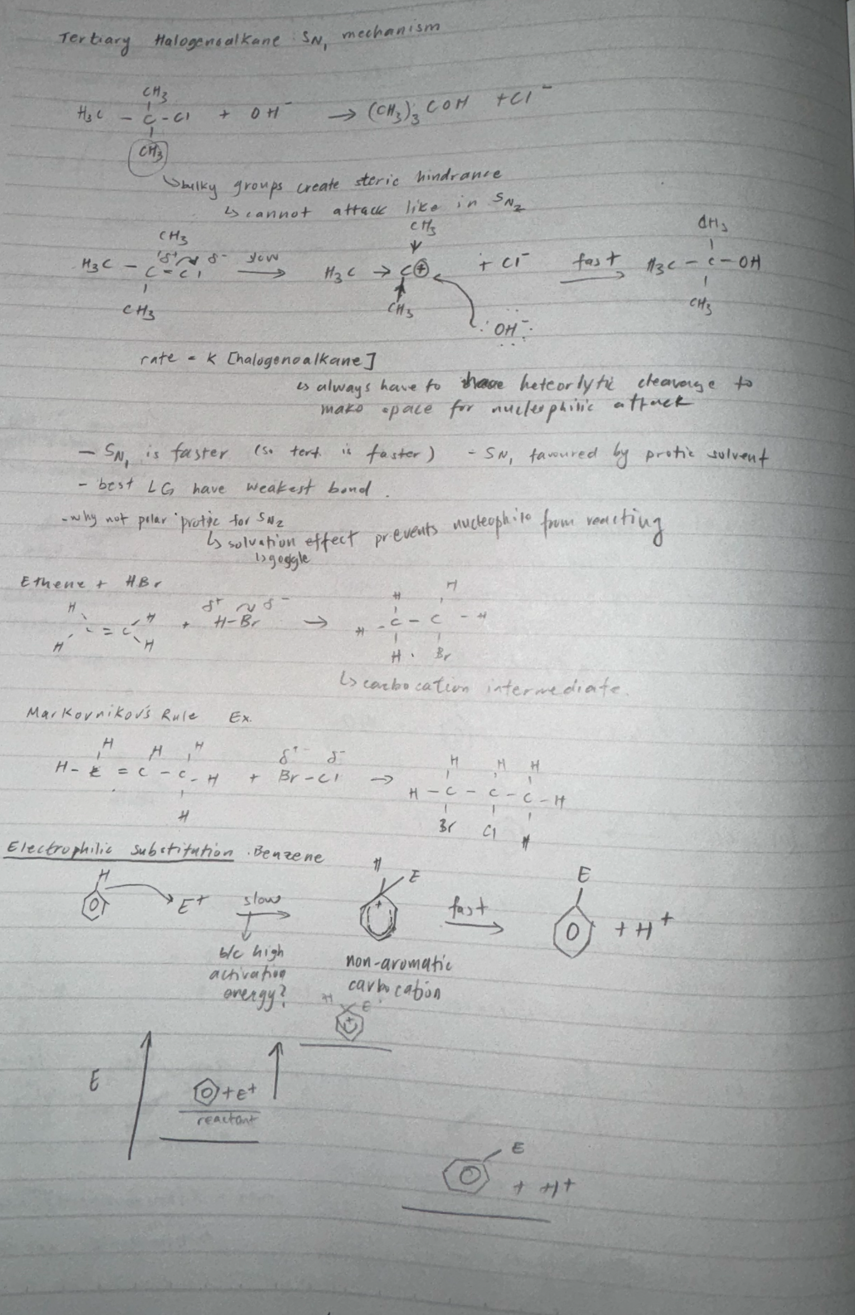 Tertiary Halogenoalkane SN1 mechanism
CH3
H3C - C - Cl + OH- → (CH3)3 COH + Cl-
CH3
↳ bulky groups create steric hindrance
↳ cannot attack like in SN2
CH3 CH3 CH3
H3C - C - Cl δ+ δ- slow → H3C → C⊕ + Cl- fast → H3C - C - OH
CH3 CH3 CH3
:OH-
rate = k [halogenoalkane]
↳ always have to have heteorlytic cleavage to
make space for nucleophilic attack
- SN1 is faster (so tert. is faster) - SN1 favoured by protic solvent
- best LG have weakest bond.
- why not polar protic for SN2
↳ solvation effect prevents nucleophile from reacting
↳ goggle
Ethene + HBr
H δ+ δ- H H
C = C H + H-Br → H - C - C - H
H H H Br
↳ carbocation intermediate.
Markovnikov's Rule Ex
H H H δ+ δ- H H H
H - C = C - C - H + Br - Cl → H - C - C - C - H
H Br Cl H
Electrophilic substitution Benzene
H H E E
E+ slow → + fast → + H+
b/c high
activation
energy?
non-aromatic
carbocation
H E
+
E
+ E+
reactant
E
+ H+